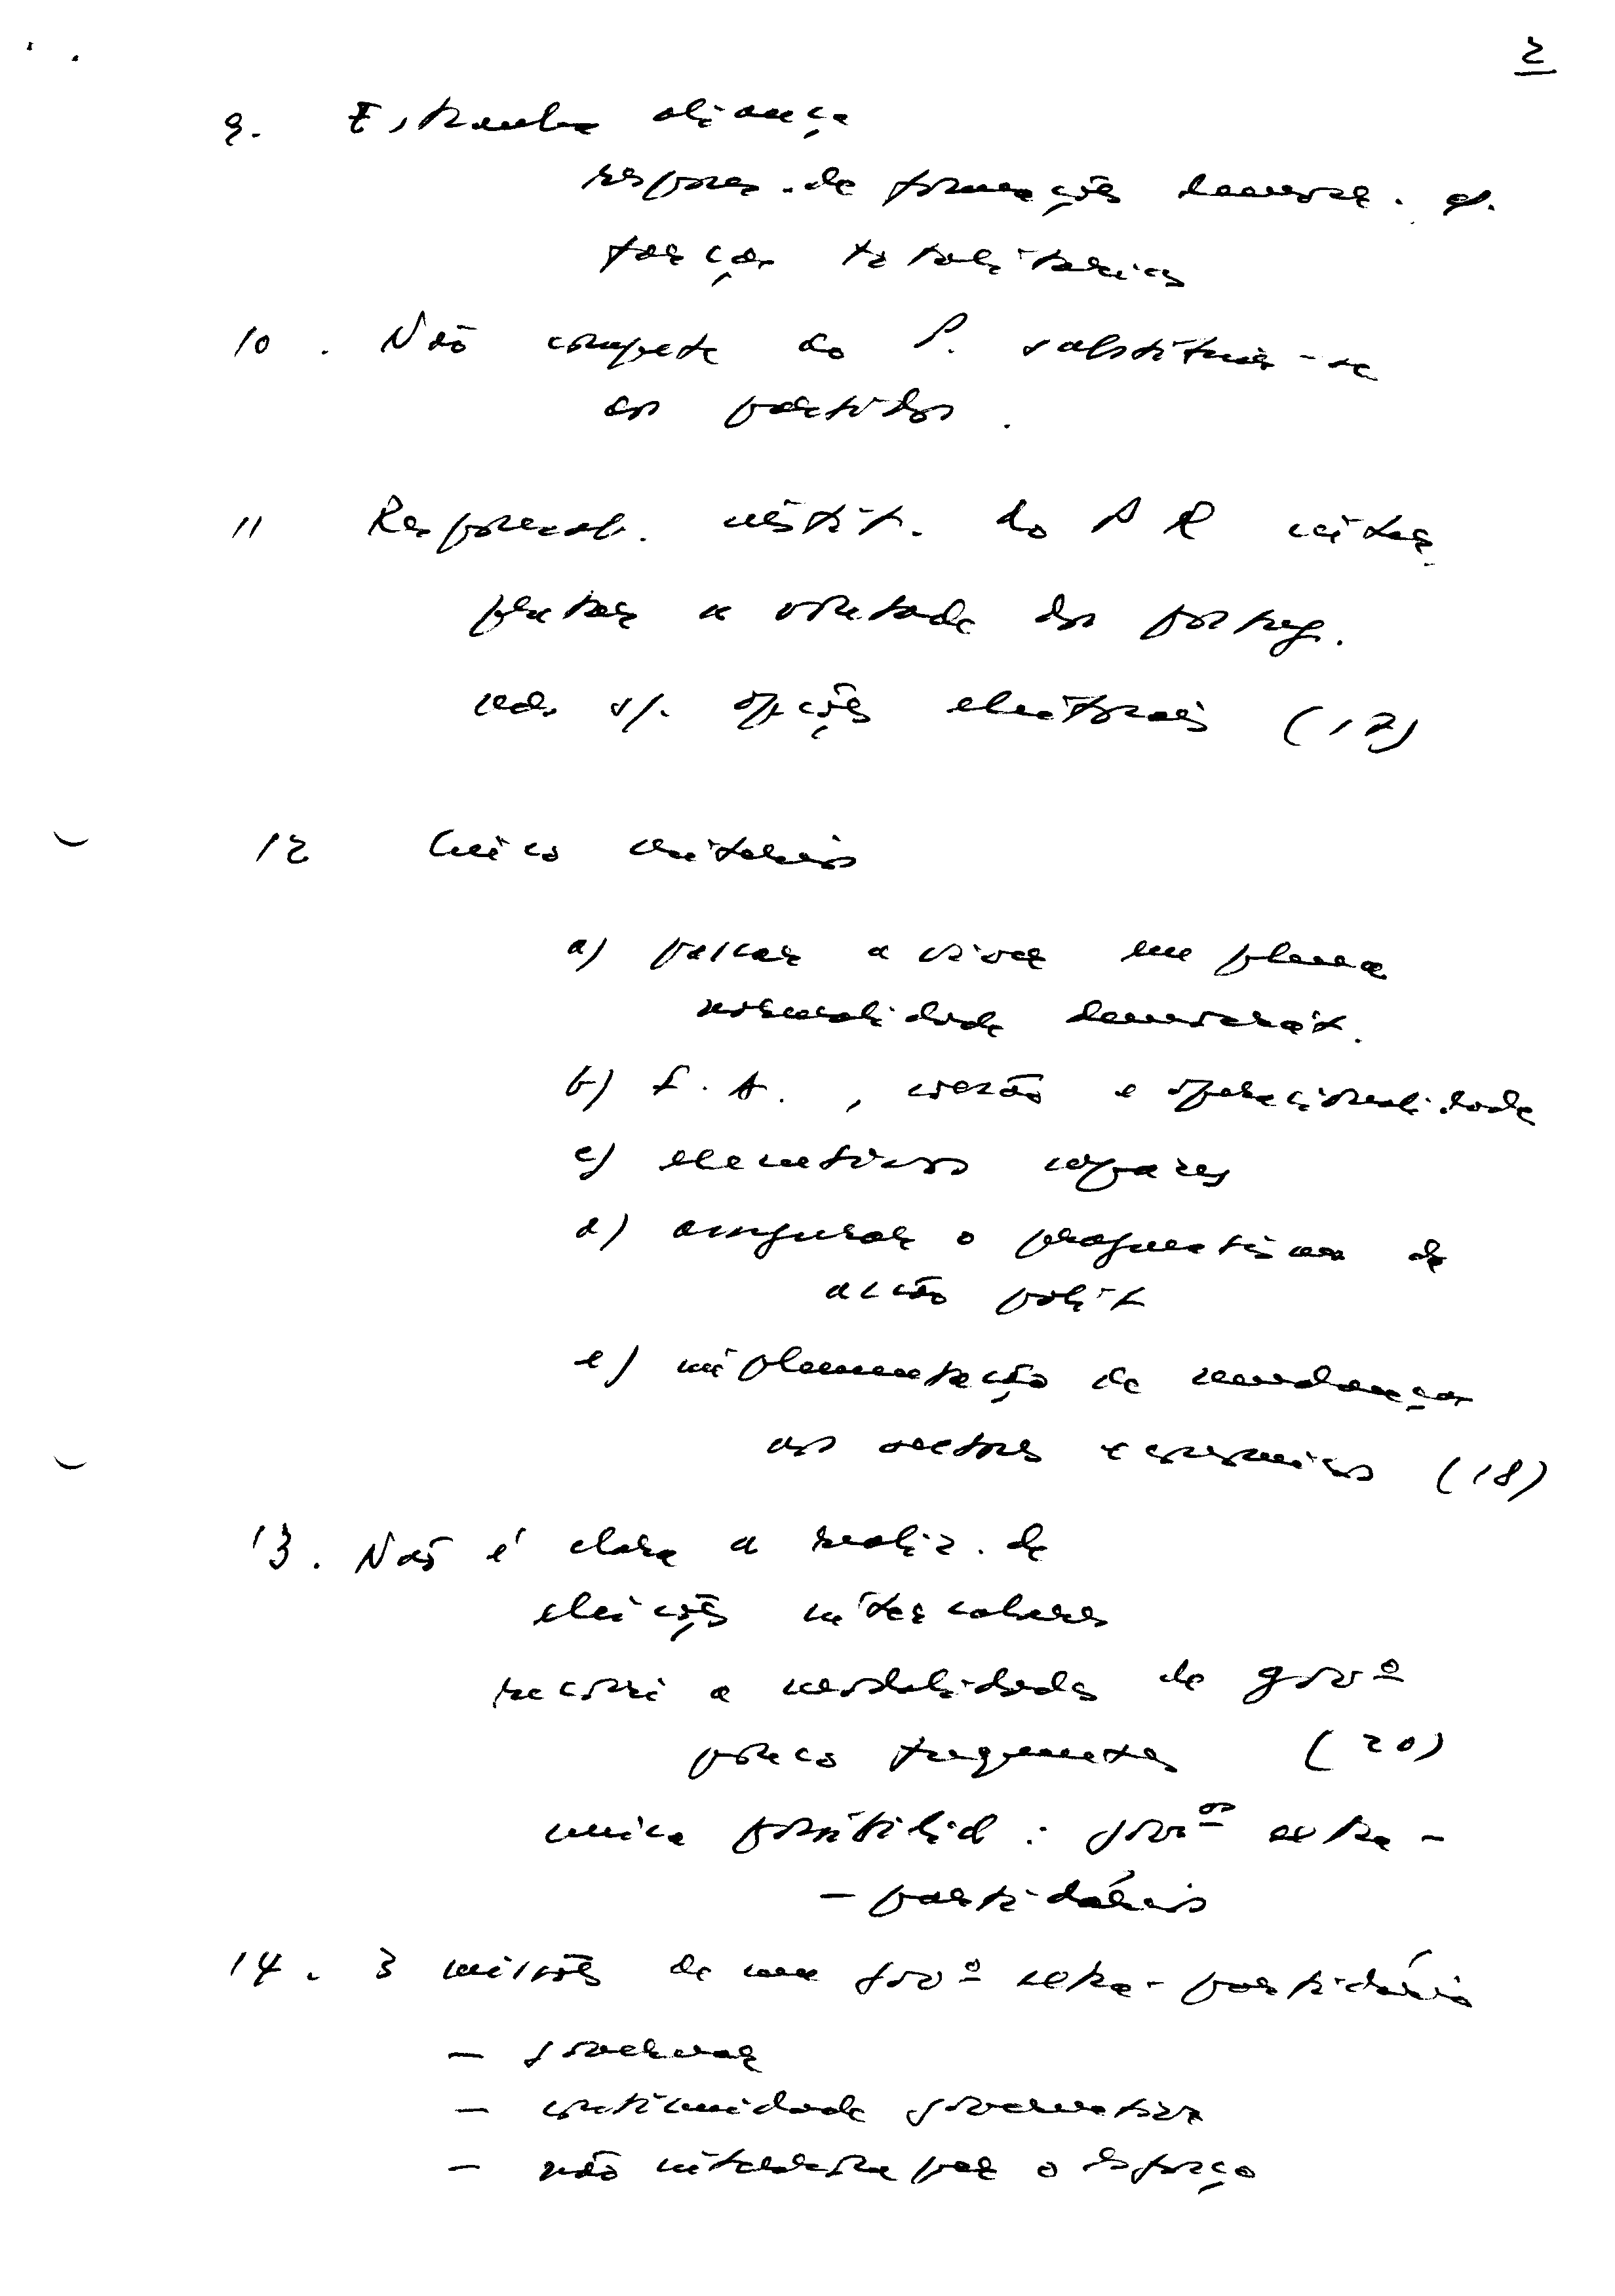 2
9. Estranha aliança
respons. de formações democr. e
forças totalitárias
10. Não compete ao P. substituir-se
aos partidos.
11 Responsab. instit. do PR inter
pretar a vontade dos portug.
nas s/. opções eleitorais (17)
12 Cinco critérios
a) passar a viver em plena
normalidade democrát.
b) F. A., coesão e operacionalidade
c) executivos capazes
d) assegurar o pragmatismo da
acção polít
e) implementação de mudanças
aos sectores económicos (18)
13. Não é clara a realiz. de
eleições intercalares
recorri a modalidades de govº
pouco frequentes (20)
unica possibilid: govºs extra-
-partidários
14. 3 missões de um govº extra-partidário
- governar
- continuidade governativa
- não interromper o esforço